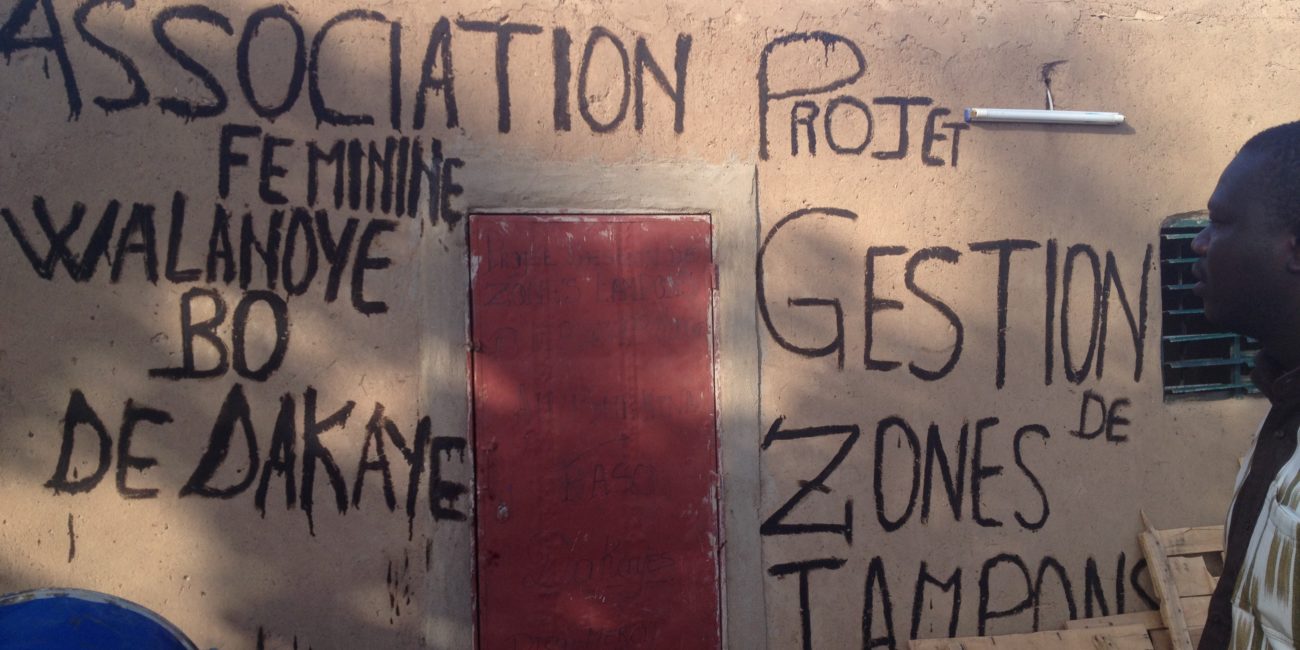 ASSOCIATION
FEMININE
WALANOYE
BO
DE DAKAYE
PROJET
GESTION
DE
ZONES
TAMPONS
ZONES
FASO